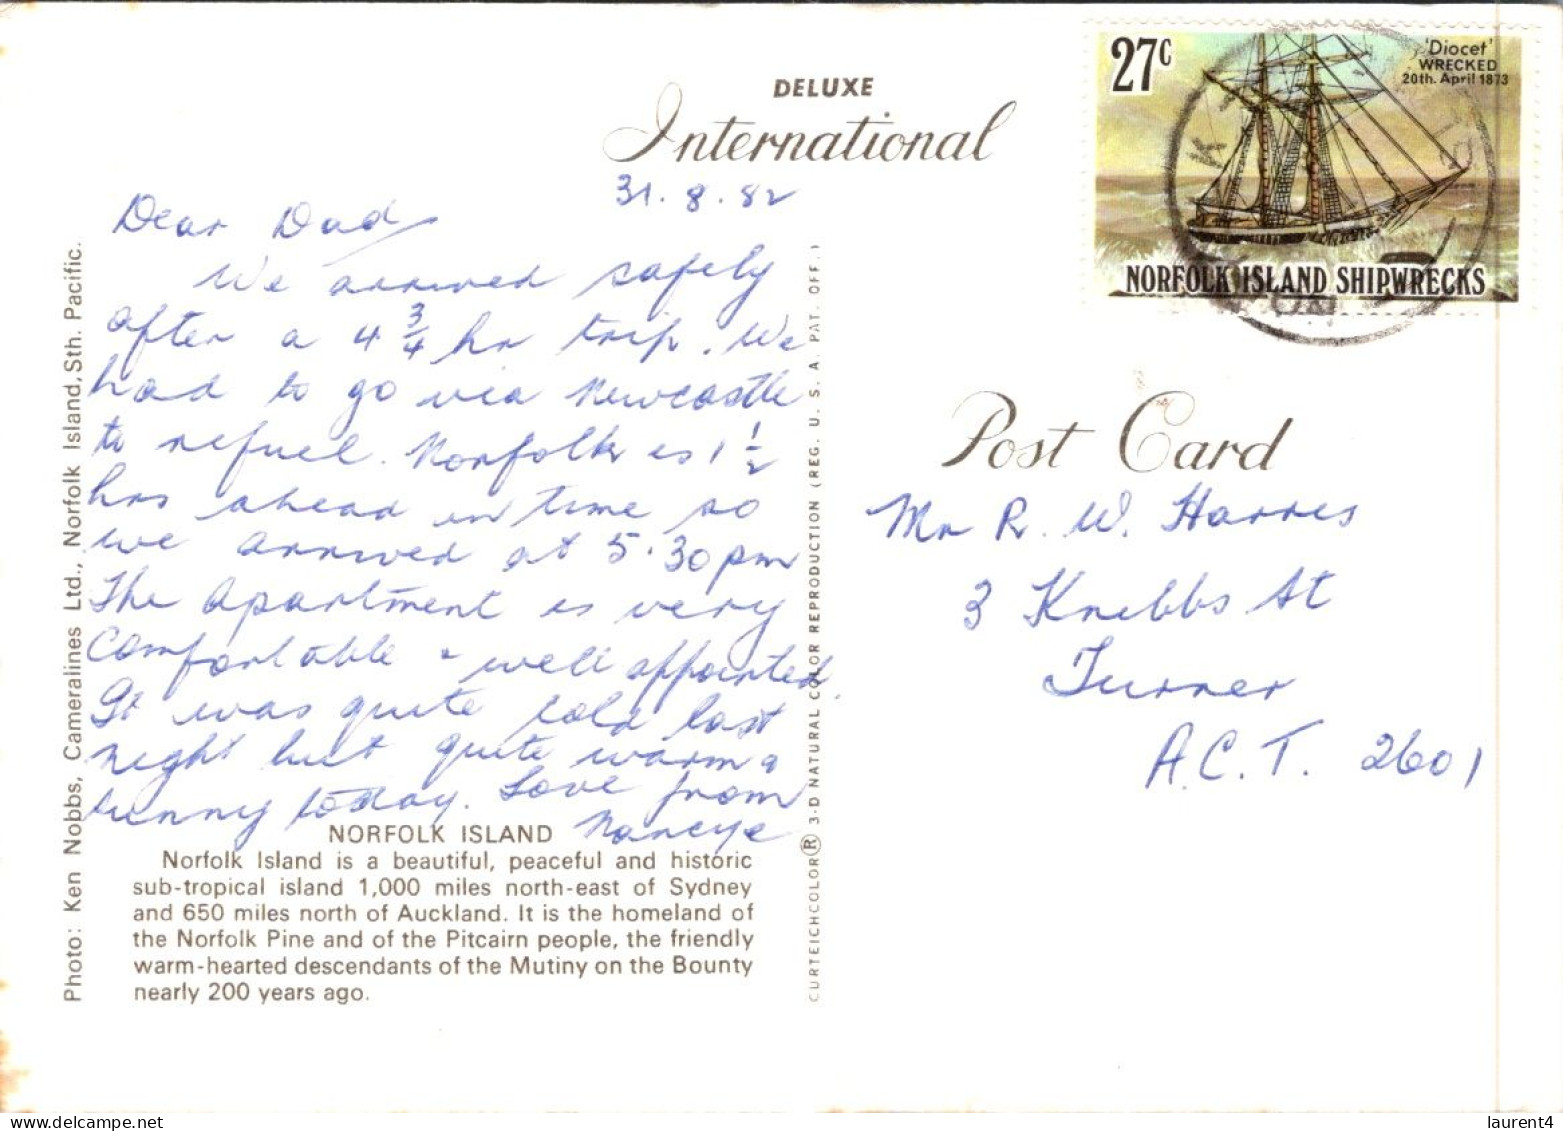 DELUXE
International
27c
'Diocet'
WRECKED
20th. April 1873
NORFOLK ISLAND SHIPWRECKS
31.8.82
Dear Dad
We arrived safely
after a 4 3/4 hr trip. We
had to go via Newcastle
to refuel. Norfolk is 1 1/2
hrs ahead in time so
we arrived at 5.30pm
The Apartment is very
comfortable & well appointed.
It was quite cold last
night but quite warm &
sunny today. Love from
Nancye
NORFOLK ISLAND
Norfolk Island is a beautiful, peaceful and historic
sub-tropical island 1,000 miles north-east of Sydney
and 650 miles north of Auckland. It is the homeland of
the Norfolk Pine and of the Pitcairn people, the friendly
warm-hearted descendants of the Mutiny on the Bounty
nearly 200 years ago.
Photo: Ken Nobbs, Cameralines Ltd., Norfolk Island, Sth. Pacific.
CURTEICHCOLOR® 3-D NATURAL COLOR REPRODUCTION (REG. U. S. A. PAT. OFF.)
Post Card
Mr R. W. Harris
3 Knibbs St
Turner
A.C.T. 2601
delcampe.net
laurent4